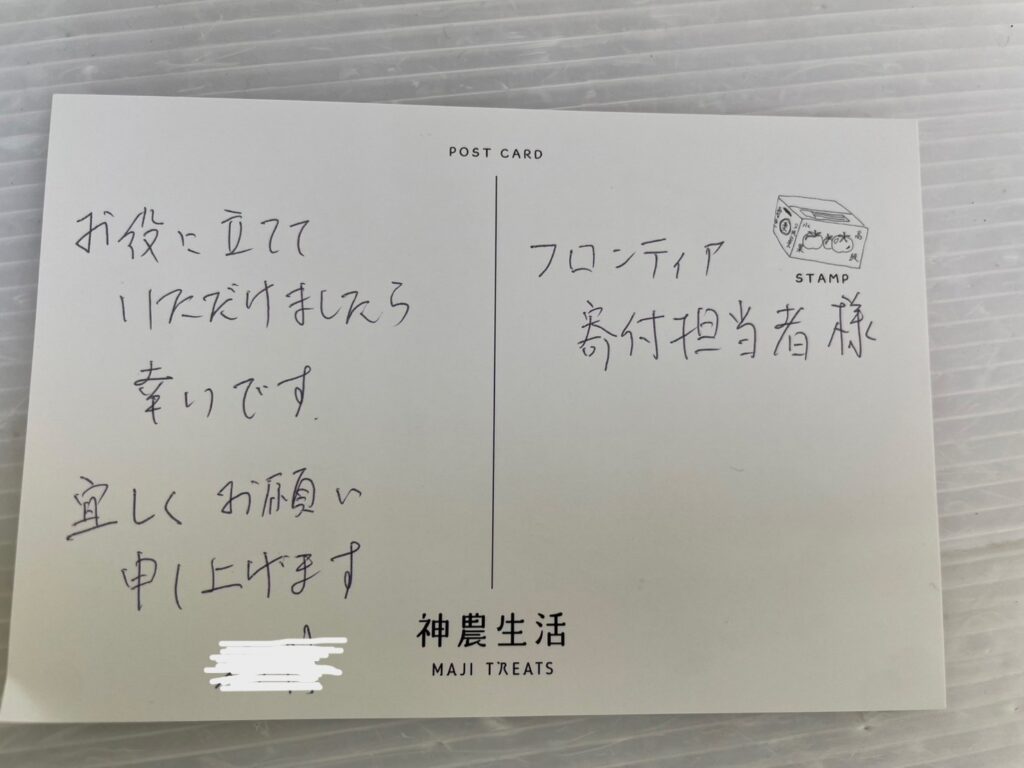 POST CARD
お役に立てて
いただけましたら
幸いです.
宜しくお願い
申し上げます
フロンティア
寄付担当者様
STAMP
神農生活
MAJI TREATS